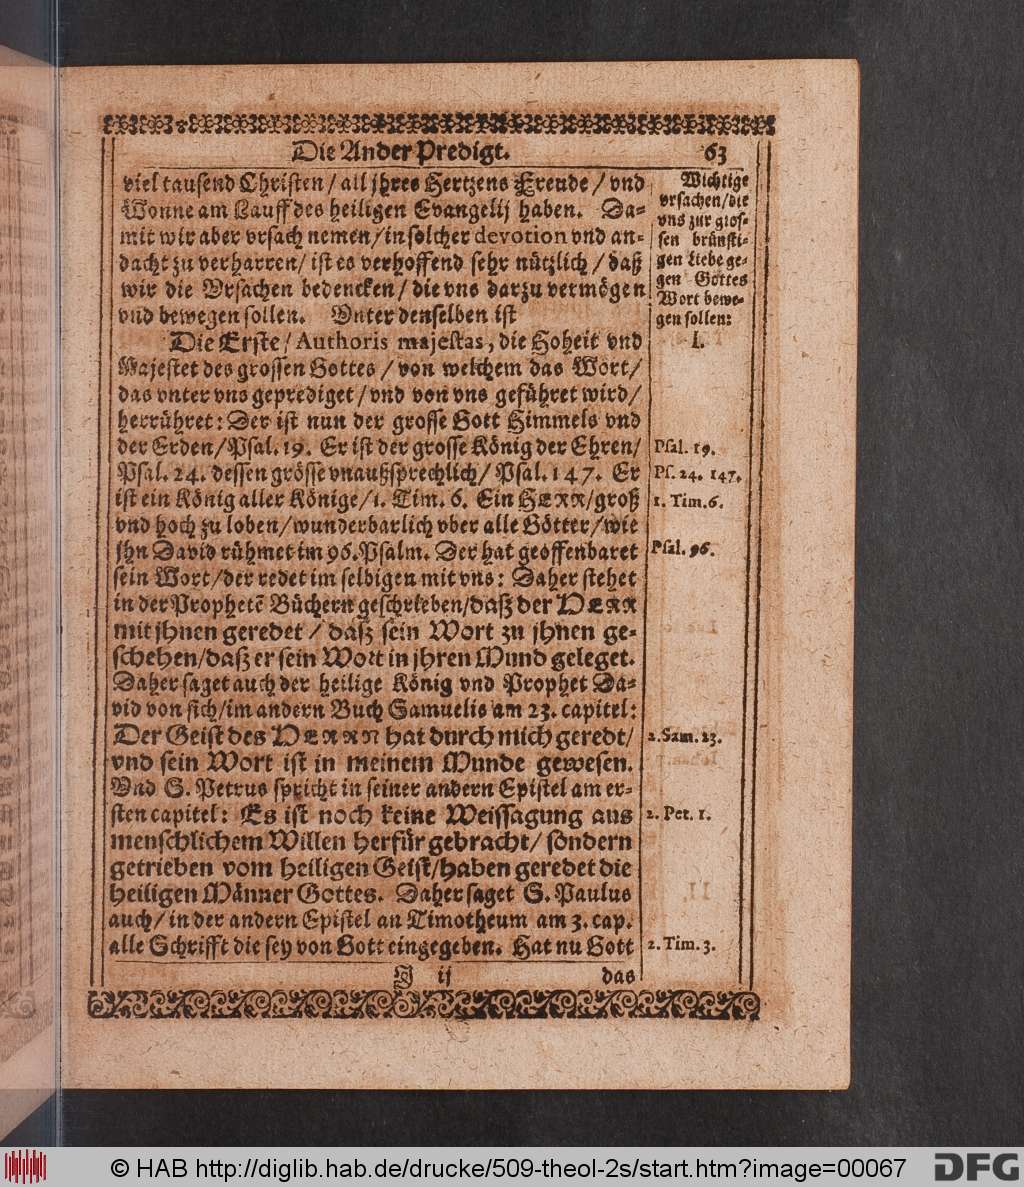 Die Ander Predigt. 63
viel tausend Christen / all jhres Hertzens Freude / vnd
Wonne am Lauff des heiligen Evangelij haben. Da=
mit wir aber vrsach nemen / in solcher devotion vnd an=
dacht zu verharren / ist es verhoffend sehr nützlich / daß
wir die Vrsachen bedencken / die vns darzu vermögen
vnd bewegen sollen. Vnter denselben ist
Die Erste / Authoris majestas, die Hoheit vnd
Majestet des grossen Gottes / von welchem das Wort /
das vnter vns geprediget / vnd von vns geführet wird /
herrühret: Der ist nun der grosse Gott Himmels vnd
der Erden / Psal. 19. Er ist der grosse König der Ehren /
Psal. 24. dessen grösse vnaußsprechlich / Psal. 147. Er
ist ein König aller Könige / 1. Tim. 6. Ein HERR / groß
vnd hoch zu loben / wunderbarlich vber alle Götter / wie
jhn David rühmet im 96. Psalm. Der hat geoffenbaret
sein Wort / der redet im selbigen mit vns: Daher stehet
in der Prophetẽ Büchern geschrieben / daß der HERR
mit jhnen geredet / daß sein Wort zu jhnen ge=
schehen / daß er sein Wort in jhren Mund geleget.
Daher saget auch der heilige König vnd Prophet Da=
vid von sich / im andern Buch Samuelis am 23. capitel:
Der Geist des HERRN hat durch mich geredt /
vnd sein Wort ist in meinem Munde gewesen.
Vnd S. Petrus spricht in seiner andern Epistel am er=
sten capitel: Es ist noch keine Weissagung aus
menschlichem Willen herfür gebracht / sondern
getrieben vom heiligen Geist / haben geredet die
heiligen Männer Gottes. Daher saget S. Paulus
auch / in der andern Epistel an Timotheum am 3. cap.
alle Schrifft die sey von Gott eingegeben. Hat nu Gott
J ij das
Wichtige
vrsachen / die
vns zur gros=
sen brünsti=
gen Liebe ge=
gen Gottes
Wort bewe=
gen sollen:
I.
Psal. 19.
Ps. 24. 147.
1. Tim. 6.
Psal. 96.
2. Sam. 23.
2. Pet. 1.
2. Tim. 3.
© HAB http://diglib.hab.de/drucke/509-theol-2s/start.htm?image=00067
DFG